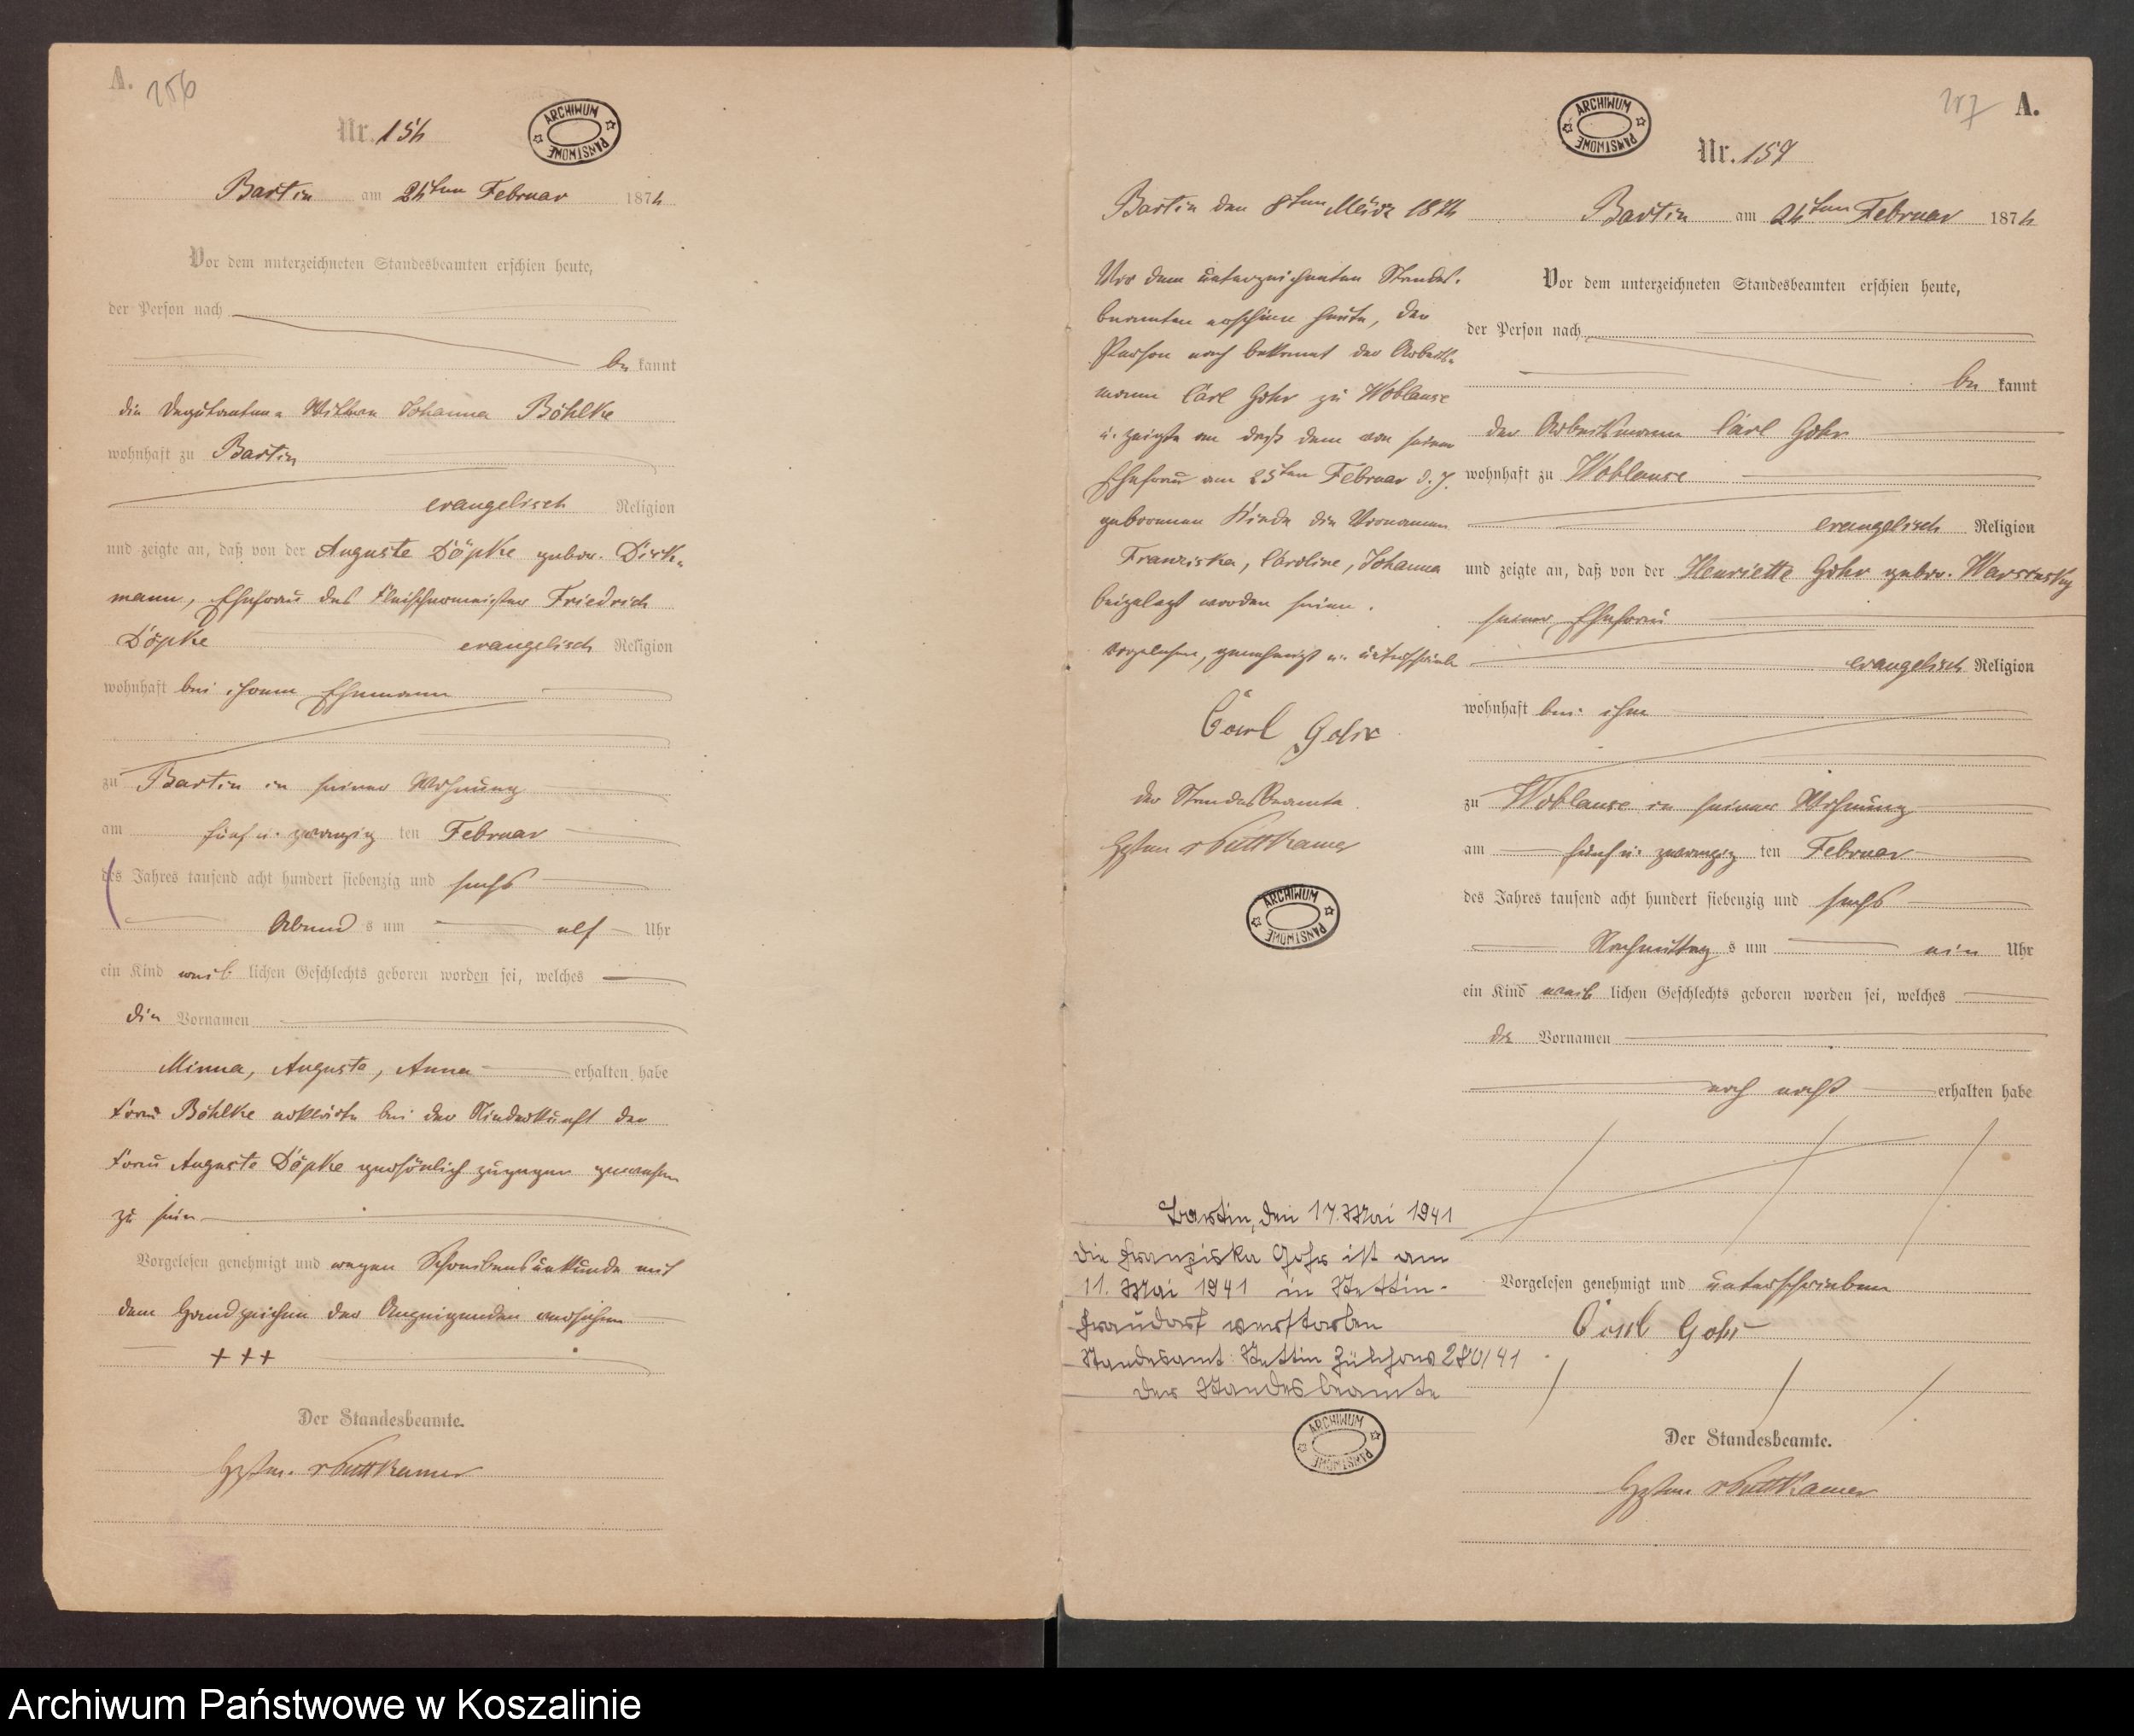 A. 256
Nr. 156
ARCHIWUM PAŃSTWOWE
Bartin am 26ten Februar 1876
Vor dem unterzeichneten Standesbeamten erschien heute,
der Person nach
be kannt
die Deputanten Wittwe Johanna Böhlke
wohnhaft zu Bartin
evangelisch Religion
und zeigte an, daß von der Auguste Döpke gebor. Dirk-
mann, Ehefrau des Fleischermeister Friedrich
Döpke evangelisch Religion
wohnhaft bei ihrem Ehemann
zu Bartin in seiner Wohnung
am fünf u. zwanzig ten Februar
des Jahres tausend acht hundert siebenzig und sechs
Abend s um elf Uhr
ein Kind weib lichen Geschlechts geboren worden sei, welches
die Vornamen
Minna, Auguste, Anna erhalten habe
Frau Böhlke erklärte bei der Niederkunft der
Frau Auguste Döpke persönlich zugegen gewesen
zu sein
Vorgelesen genehmigt und wegen Schreibensunkunde mit
dem Handzeichen der Anzeigenden versehen
+++
Der Standesbeamte.
v Puttkamer
257 A.
ARCHIWUM PAŃSTWOWE
Nr. 157
Bartin am 26ten Februar 1876
Vor dem unterzeichneten Standesbeamten erschien heute,
der Person nach
be kannt
der Arbeitsmann Carl Gohr
wohnhaft zu Woblanse
evangelisch Religion
und zeigte an, daß von der Henriette Gohr gebor.
seiner Ehefrau
evangelisch Religion
wohnhaft bei ihm
zu Woblanse in seiner Wohnung
am fünf u. zwanzig ten Februar
des Jahres tausend acht hundert siebenzig und sechs
Nachmittag s um ein Uhr
ein Kind weib lichen Geschlechts geboren worden sei, welches
die Vornamen
noch nicht erhalten habe
Vorgelesen genehmigt und unterschrieben
Carl Gohr
Der Standesbeamte.
v Puttkamer
Bartin den 8ten März 1876
Vor dem unterzeichneten Standes-
beamten erschien heute, der
Person nach bekannt der Arbeits-
mann Carl Gohr zu Woblanse
u. zeigte an daß dem von seiner
Ehefrau am 25ten Februar d. J.
geborenen Kinde die Vornamen
Franziska, Caroline, Johanna
beigelegt worden seien.
Vorgelesen, genehmigt u. unterschrieben
Carl Gohr
der Standesbeamte
v Puttkamer
ARCHIWUM PAŃSTWOWE
Bartin, den 17. Mai 1941
Die Franziska Gohr ist am
11. Mai 1941 in Stettin-
Frauendorf verstorben
Standesamt: Stettin Züllchow 280/41
Der Standesbeamte
ARCHIWUM PAŃSTWOWE
Archiwum Państwowe w Koszalinie